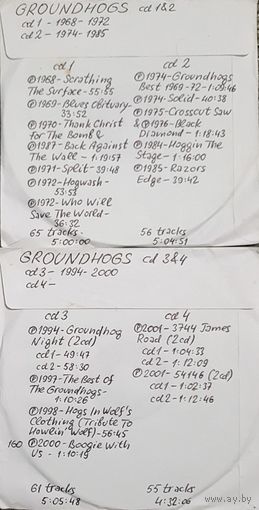 GROUNDHOGS cd 1&2
cd1 - 1968-1972
cd2 - 1974-1985
cd1
℗1968-Scrathing
The Surface-55:55
℗1969-Blues Obituary-
33:52
℗1970-Thank Christ
for The Bomb &
℗1987-Back Against
The Wall - 1:19:57
℗1971-Split-39:48
℗1972-Hogwash-
53:53
℗1972-Who Will
Save The World-
36:32
65 tracks-
5:00:00
cd 2
℗1974-Groundhogs
Best 1969-72-1:09:46
℗1974-Solid-40:38
℗1975-Crosscut Saw
&℗1976-Black
Diamond-1:18:43
℗1984-Hoggin The
Stage-1:16:00
℗1985-Razors
Edge-39:42
56 tracks-
5:04:51
GROUNDHOGS cd 3&4
cd3-1994-2000
cd4-
cd3
℗1994-Groundhog
Night (2cd)
cd1-49:47
cd2-58:30
℗1997-The Best Of
The Groundhogs-
1:10:26
℗1998-Hogs In Wolf's
Clothing (Tribute To
Howlin' Wolf)-56:45
160 ℗2000-Boogie With
Us-1:10:19
61 tracks
5:05:48
cd 4
℗2001-3744 James
Road (2cd)
cd1-1:04:33
cd2-1:12:09
℗2001-54146 (2cd)
cd1-1:02:37
cd2-1:12:46
55 tracks
4:32:06
www.ay.by